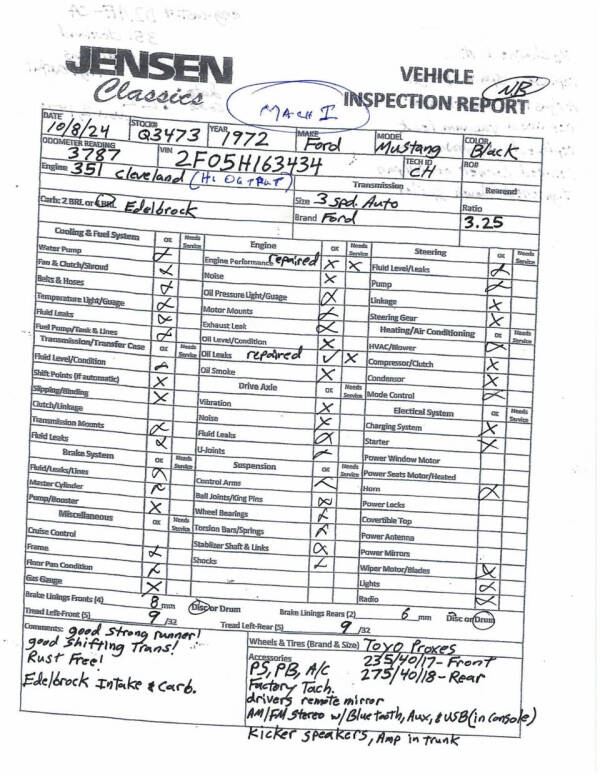 JENSEN
Classics
VEHICLE
INSPECTION REPORT
NB
MACH I
DATE 10/8/24 STOCK# Q3473 YEAR 1972 MAKE Ford MODEL Mustang COLOR Black
ODOMETER READING 3787 VIN 2F05H163434 TECH ID CH RO#
Engine 351 Cleveland (Hi OUTPUT) Transmission Rearend
Carb: 2 BRL or 4 BRL Edelbrock Size 3 Spd. Auto Ratio
Brand Ford 3.25
Cooling & Fuel System OK Needs Service
Water Pump X
Fan & Clutch/Shroud X
Belts & Hoses X
Temperature Light/Guage X
Fluid Leaks X
Fuel Pump/Tank & Lines X
Transmission/Transfer Case OK Needs Service
Fluid Level/Condition X
Shift Points (if automatic) X
Slipping/Binding X
Clutch/Linkage
Transmission Mounts X
Fluid Leaks X
Brake System OK Needs Service
Fluid/Leaks/Lines X
Master Cylinder X
Pump/Booster X
Miscellaneous OK Needs Service
Cruise Control
Frame X
Floor Pan Condition X
Gas Gauge X
Engine OK Needs Service
Engine Performance repaired X X
Noise X
Oil Pressure Light/Guage X
Motor Mounts X
Exhaust Leak X
Oil Level/Condition X
Oil Leaks repaired ✓ X
Oil Smoke X
Drive Axle OK Needs Service
Vibration X
Noise X
Fluid Leaks X
U-Joints X
Suspension OK Needs Service
Control Arms X
Ball Joints/King Pins X
Wheel Bearings X
Torsion Bars/Springs X
Stablizer Shaft & Links X
Shocks X
Steering OK Needs Service
Fluid Level/Leaks X
Pump X
Linkage X
Steering Gear X
Heating/Air Conditioning OK Needs Service
HVAC/Blower X
Compressor/Clutch X
Condensor X
Mode Control X
Electical System OK Needs Service
Charging System X
Starter X
Power Window Motor
Power Seats Motor/Heated
Horn X
Power Locks
Covertible Top
Power Antenna
Power Mirrors
Wiper Motor/Blades X
Lights X
Radio X
Brake Linings Fronts (4) 8 mm Disc or Drum Brake Linings Rears (2) 6 mm Disc or Drum
Tread Left-Front (5) 9 /32 Tread Left-Rear (5) 9 /32
Comments: good strong runner!
good shifting Trans!
Rust Free!
Edelbrock Intake & Carb.
Wheels & Tires (Brand & Size) Toyo Proxes
235/40/17-Front
275/40/18-Rear
Accessories
PS, PB, A/C
Factory Tach.
drivers remote mirror
AM/FM Stereo w/ Bluetooth, Aux, & USB (in console)
Kicker speakers, Amp in trunk